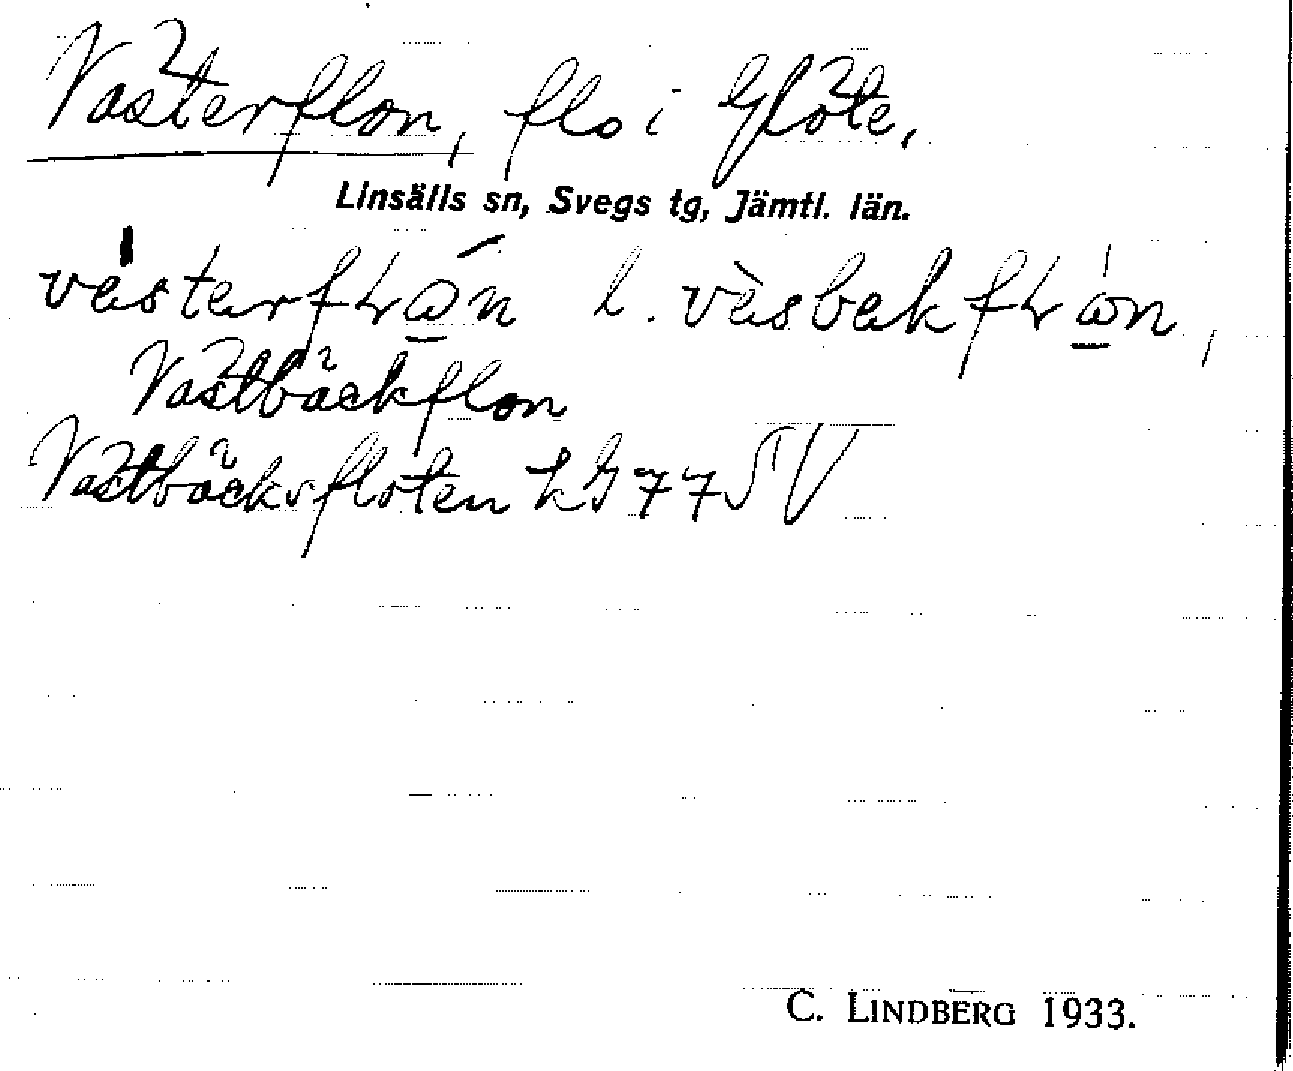 Västerflon, flo i Glöte,
Linsälls sn, Svegs tg, Jämtl. län.
l.
Västbäckflon
Västbäcksfloten LG 77 SV
C. LINDBERG 1933.